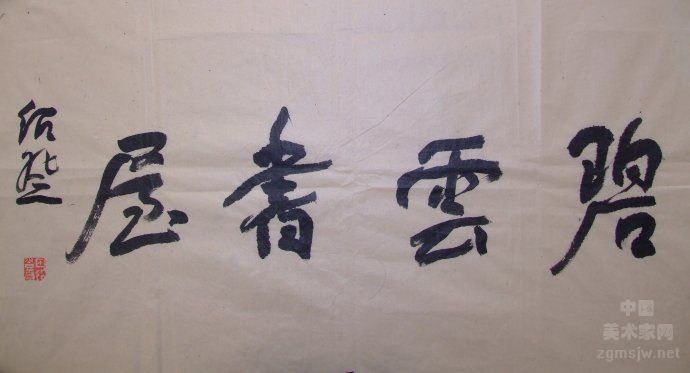 碧雲書屋
中国
美术家网
zgmsjw.net